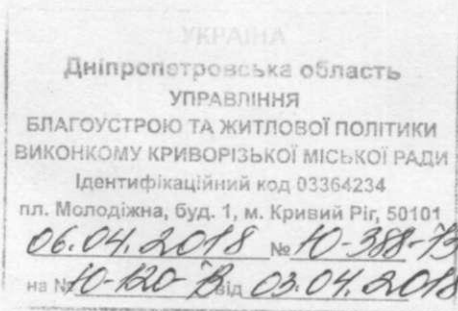 УКРАЇНА
Дніпропетровська область
УПРАВЛІННЯ
БЛАГОУСТРОЮ ТА ЖИТЛОВОЇ ПОЛІТИКИ
ВИКОНКОМУ КРИВОРІЗЬКОЇ МІСЬКОЇ РАДИ
Ідентифікаційний код 03364234
пл. Молодіжна, буд. 1, м. Кривий Ріг, 50101
06.04.2018 № 10-388-ТВ
на № 10-120-ТВ від 03.04.2018